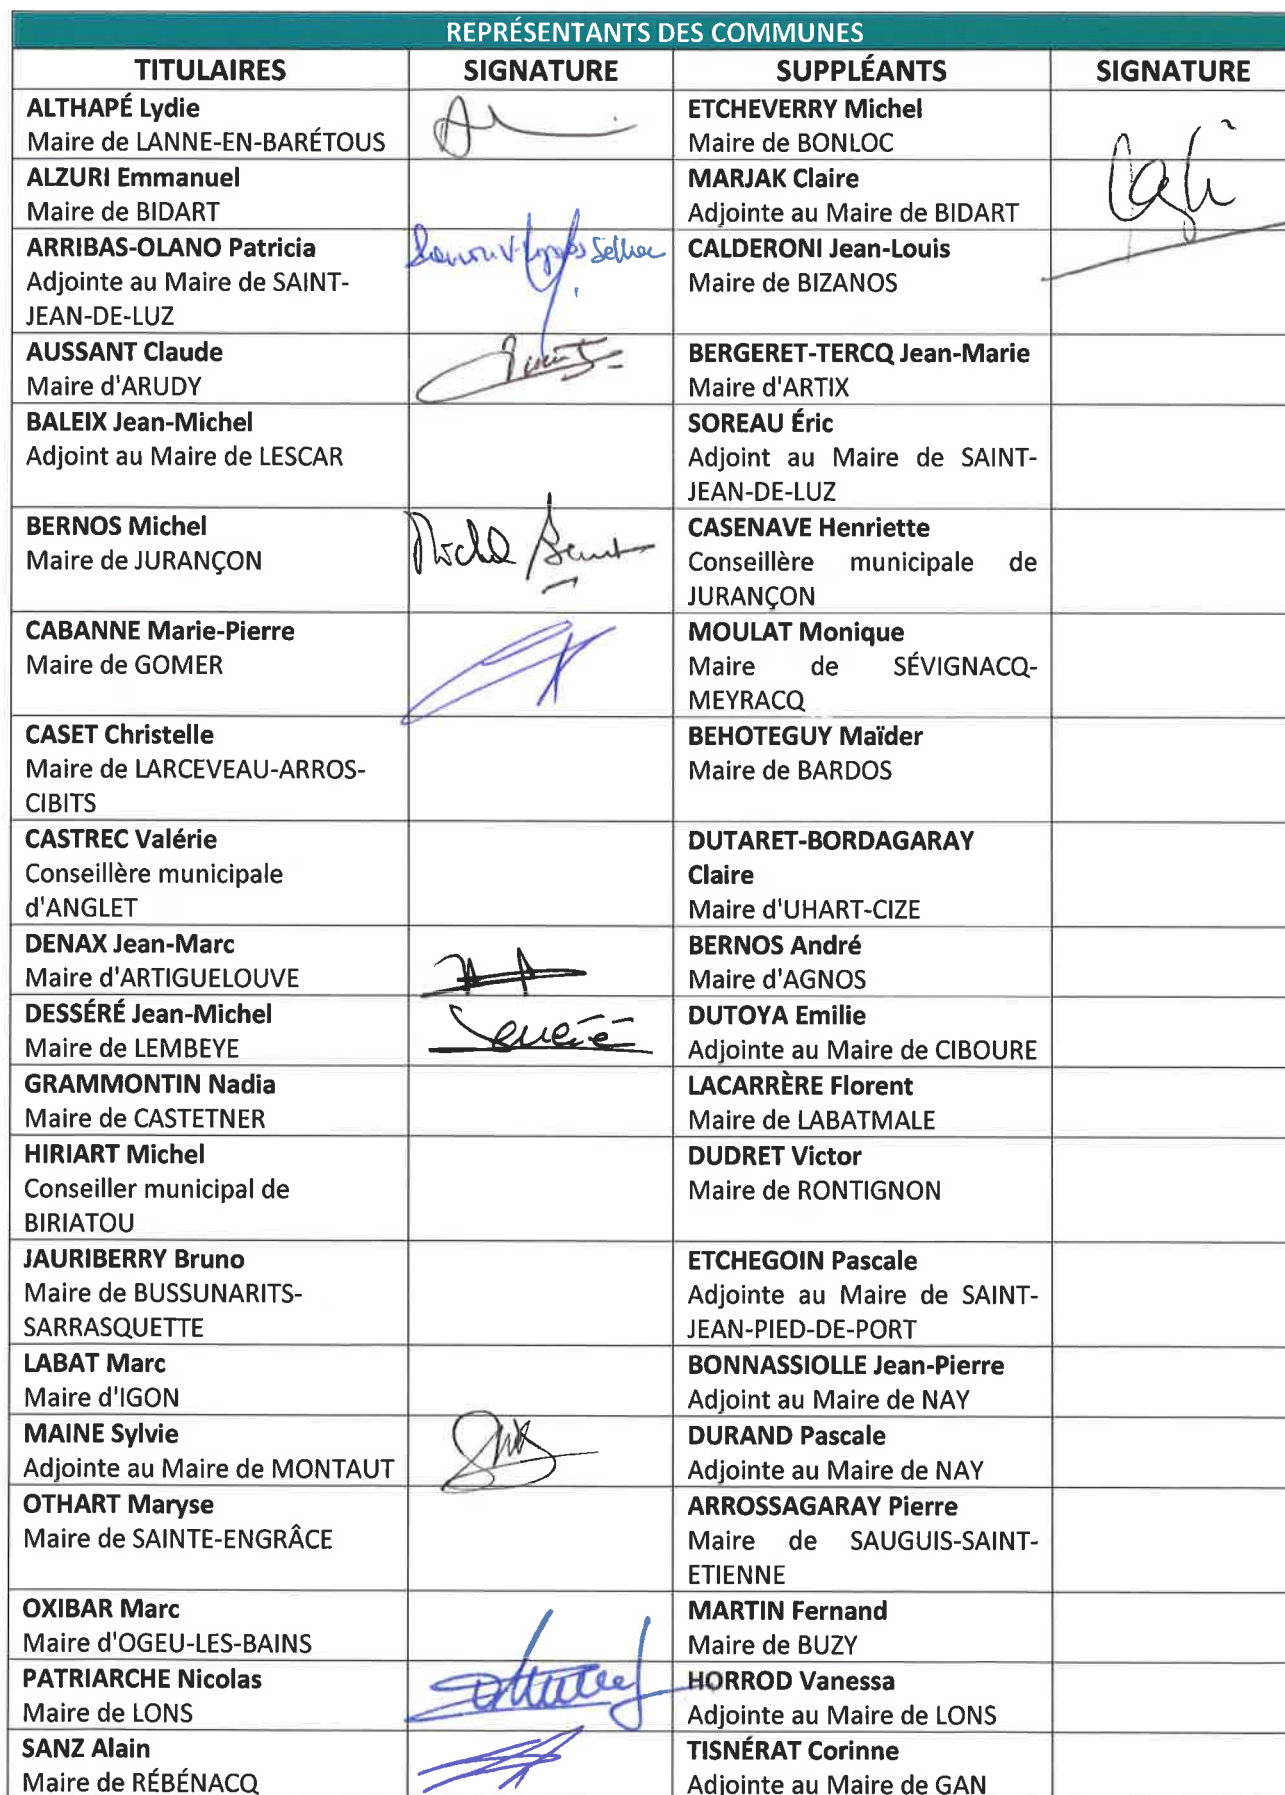 REPRÉSENTANTS DES COMMUNES
TITULAIRES SIGNATURE SUPPLÉANTS SIGNATURE
ALTHAPÉ Lydie
Maire de LANNE-EN-BARÉTOUS
ETCHEVERRY Michel
Maire de BONLOC
ALZURI Emmanuel
Maire de BIDART
MARJAK Claire
Adjointe au Maire de BIDART
ARRIBAS-OLANO Patricia
Adjointe au Maire de SAINT-
JEAN-DE-LUZ
CALDERONI Jean-Louis
Maire de BIZANOS
AUSSANT Claude
Maire d'ARUDY
BERGERET-TERCQ Jean-Marie
Maire d'ARTIX
BALEIX Jean-Michel
Adjoint au Maire de LESCAR
SOREAU Éric
Adjoint au Maire de SAINT-
JEAN-DE-LUZ
BERNOS Michel
Maire de JURANÇON
Michel
CASENAVE Henriette
Conseillère municipale de
JURANÇON
CABANNE Marie-Pierre
Maire de GOMER
MOULAT Monique
Maire de SÉVIGNACQ-
MEYRACQ
CASET Christelle
Maire de LARCEVEAU-ARROS-
CIBITS
BEHOTEGUY Maïder
Maire de BARDOS
CASTREC Valérie
Conseillère municipale
d'ANGLET
DUTARET-BORDAGARAY
Claire
Maire d'UHART-CIZE
DENAX Jean-Marc
Maire d'ARTIGUELOUVE
BERNOS André
Maire d'AGNOS
DESSÉRÉ Jean-Michel
Maire de LEMBEYE
DUTOYA Emilie
Adjointe au Maire de CIBOURE
GRAMMONTIN Nadia
Maire de CASTETNER
LACARRÈRE Florent
Maire de LABATMALE
HIRIART Michel
Conseiller municipal de
BIRIATOU
DUDRET Victor
Maire de RONTIGNON
JAURIBERRY Bruno
Maire de BUSSUNARITS-
SARRASQUETTE
ETCHEGOIN Pascale
Adjointe au Maire de SAINT-
JEAN-PIED-DE-PORT
LABAT Marc
Maire d'IGON
BONNASSIOLLE Jean-Pierre
Adjoint au Maire de NAY
MAINE Sylvie
Adjointe au Maire de MONTAUT
DURAND Pascale
Adjointe au Maire de NAY
OTHART Maryse
Maire de SAINTE-ENGRÂCE
ARROSSAGARAY Pierre
Maire de SAUGUIS-SAINT-
ETIENNE
OXIBAR Marc
Maire d'OGEU-LES-BAINS
MARTIN Fernand
Maire de BUZY
PATRIARCHE Nicolas
Maire de LONS
HORROD Vanessa
Adjointe au Maire de LONS
SANZ Alain
Maire de RÉBÉNACQ
TISNÉRAT Corinne
Adjointe au Maire de GAN